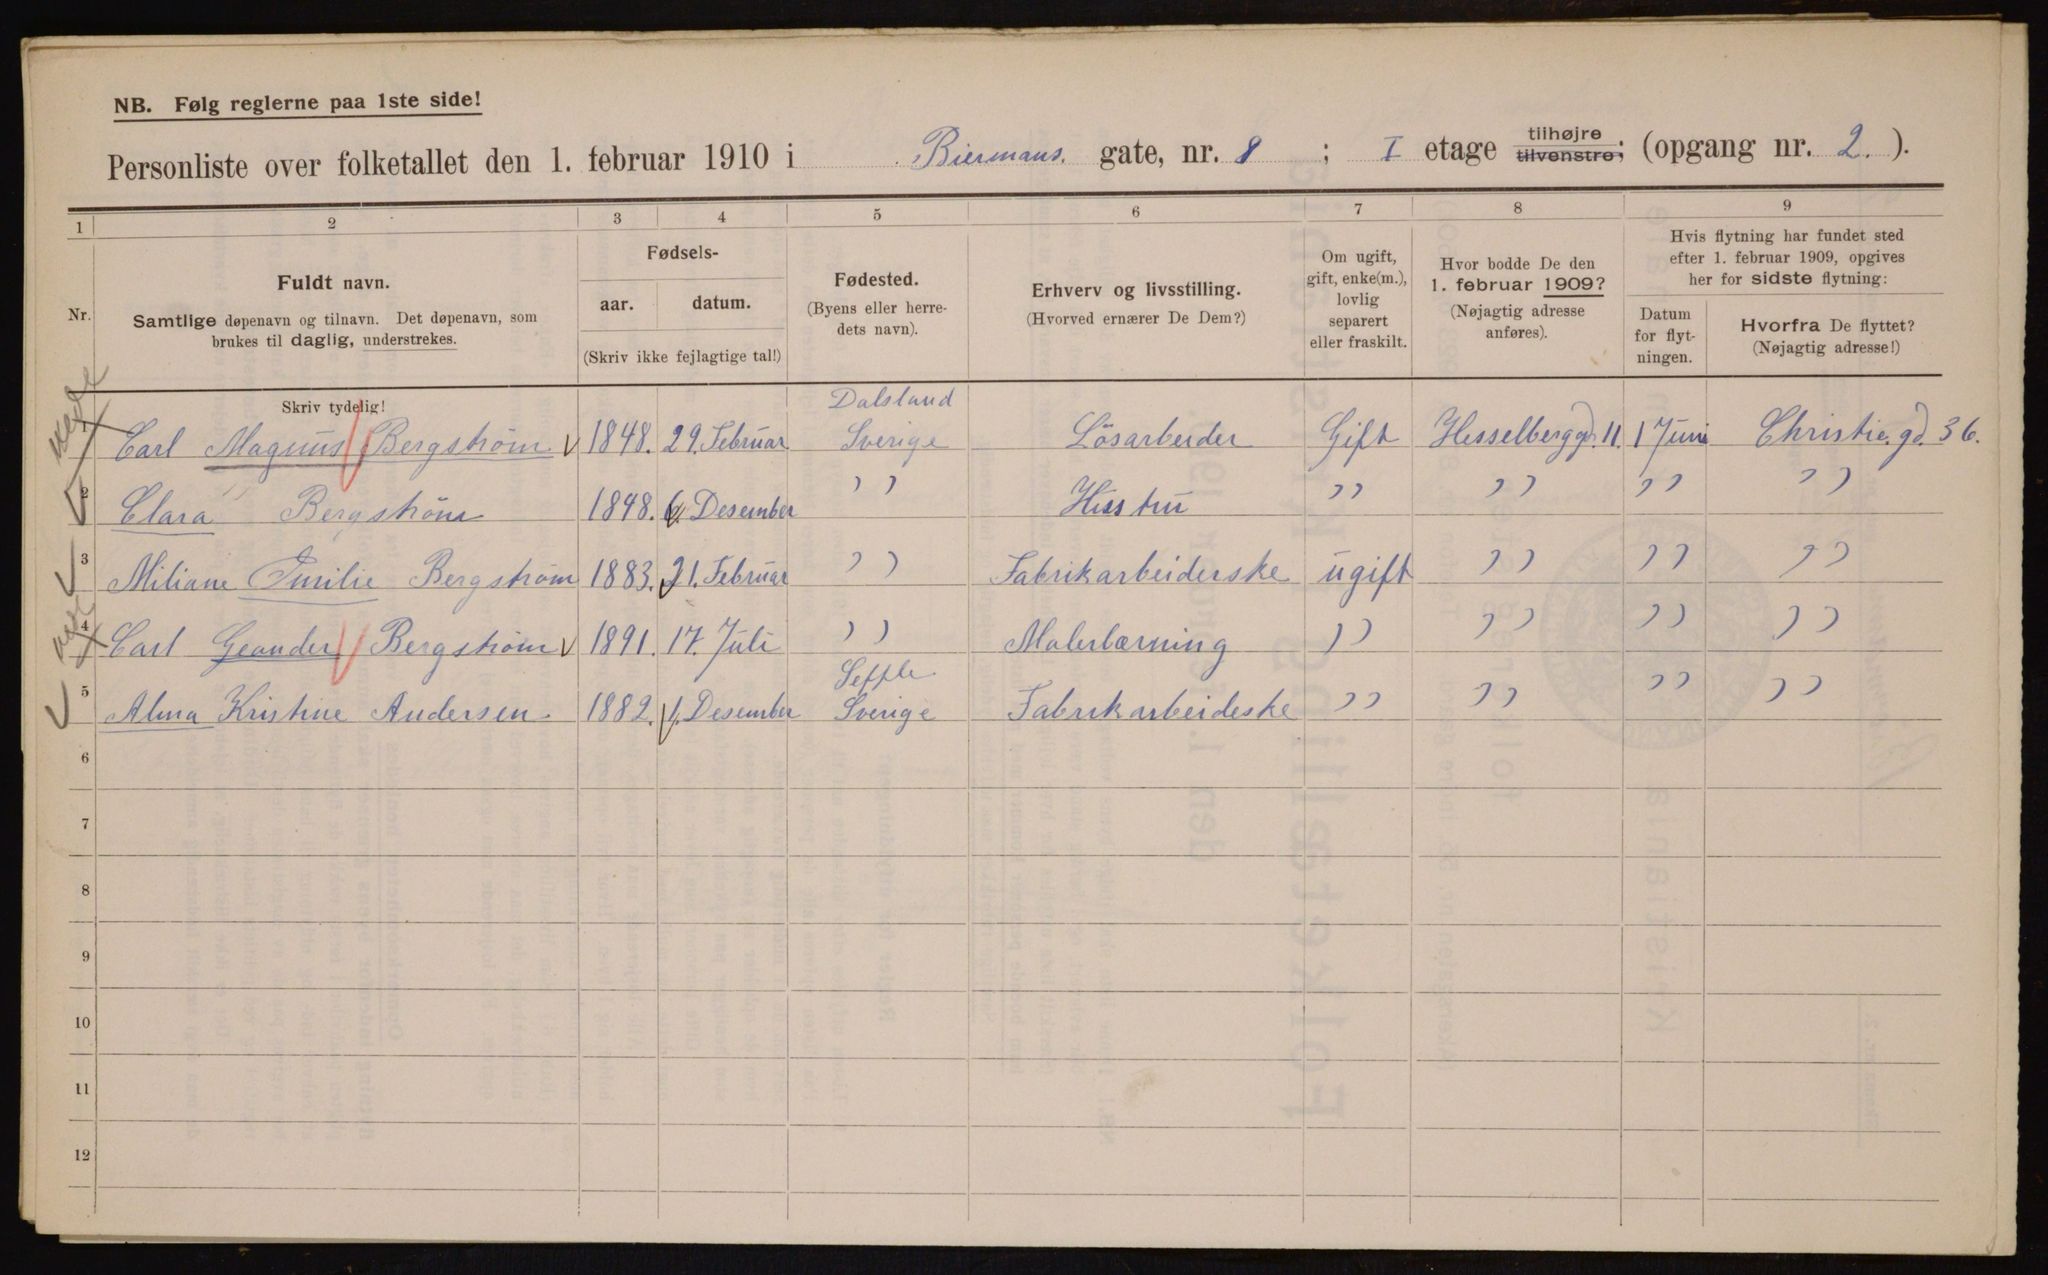 NB. Følg reglerne paa 1ste side!
Personliste over folketallet den 1. februar 1910 i Biermans. gate, nr. 8 ; I etage tilhøjre tilvenstre; (opgang nr. 2. ).
1 2 3 4 5 6 7 8 9
Nr.
Fuldt navn.
Samtlige døpenavn og tilnavn. Det døpenavn, som
brukes til daglig, understrekes.
Fødsels-
aar. datum.
(Skriv ikke fejlagtige tal!)
Fødested.
(Byens eller herre-
dets navn).
Erhverv og livsstilling.
(Hvorved ernærer De Dem?)
Om ugift,
gift, enke(m.),
lovlig
separert
eller fraskilt.
Hvor bodde De den
1. februar 1909?
(Nøjagtig adresse
anføres).
Hvis flytning har fundet sted
efter 1. februar 1909, opgives
her for sidste flytning:
Datum
for flyt-
ningen.
Hvorfra De flyttet?
(Nøjagtig adresse!)
Skriv tydelig!
Dalsland
1 Carl Magnus Bergstrøm 1848. 29. Februar Sverige Lösarbeider Gift Hesselberggd. 11. 1 Juni Christie.gd. 36.
2 Clara Bergstrøm 1848. 6. Desember " Hustru " " " "
3 Miliane Emilie Bergstrøm 1883. 21. Februar " Fabrikarbeiderske ugift " " "
4 Carl Geander Bergstrøm 1891. 17. Juli " Malerlærning " " " "
Seffle
5 Alma Kristine Andersen. 1882. 1. Desember Sverige Fabrikarbeideske " " " "
6
7
8
9
10
11
12